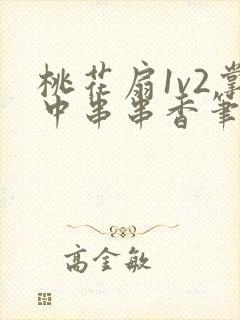 桃花扇1v2掌
中串串香笔
高金敏